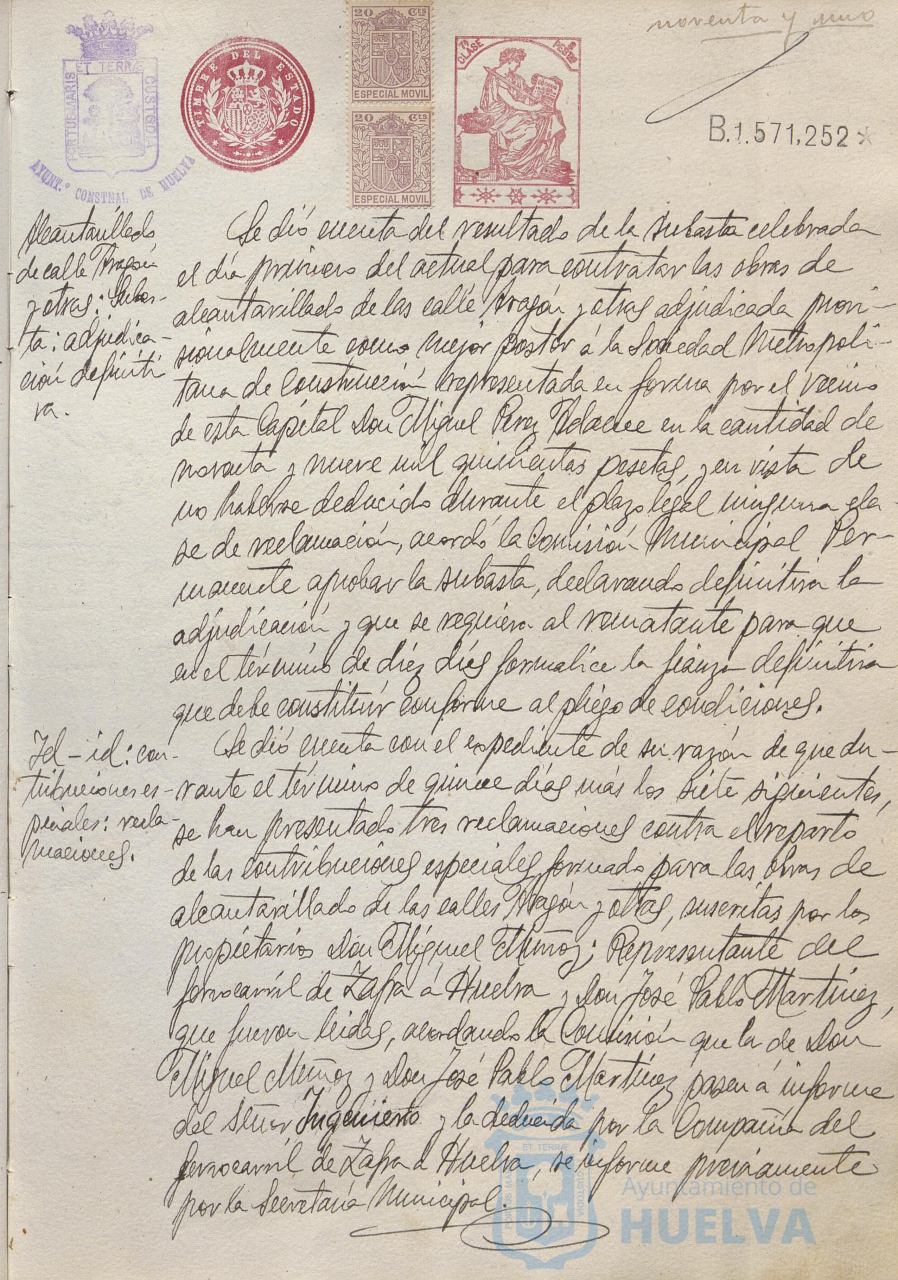 noventa y uno
PORTUS MARIS ET TERRÆ CUSTODIA
AYUNT.º CONSTNAL DE HUELVA
TIMBRE DEL ESTADO
20 Cts
ESPECIAL MOVIL
20 Cts
ESPECIAL MOVIL
7ª CLASE
PESETAS
B.1.571,252*
Alcantarillado
de calle Aragón
y otras: Subas-
ta: adjudica-
ción definiti
va.
Se dió cuenta del resultado de la subasta celebrada
el día primero del actual para contratar las obras de
alcantarillado de las calle Aragón y otras adjudicada provi-
sionalmente como mejor postor á la Sociedad Metropoli-
tana de Construcción representada en forma por el vecino
de esta Capital Don Miguel Perez en la cantidad de
noventa y nueve mil quinientas pesetas, y en vista de
no haberse deducido durante el plazo legal ninguna cla-
se de reclamación, acordó la Comisión Municipal Per-
manente aprobar la subasta, declarando definitiva la
adjudicación y que se requiera al rematante para que
en el término de diez días formalice la fianza definitiva
que debe constituir conforme al pliego de condiciones.
Id - id: con-
tribuciones es-
peciales: recla-
maciones.
Se dió cuenta con el expediente de su razón de que du-
rante el término de quince días más los siete siguientes,
se han presentado tres reclamaciones contra el reparto
de las contribuciones especiales formado para las obras de
alcantarillado de las calles Aragón y otras, suscritas por los
propietarios Don Miguel Muñoz; Representante del
ferrocarril de Zafra á Huelva y Don José Pablo Martínez,
que fueron leidas, acordando la Comisión que la de Don
Miguel Muñoz y Don José Pablo Martínez pasen á informe
del Señor Ingeniero y la deducida por la Compañía del
ferrocarril de Zafra á Huelva, se informe previamente
por la Secretaría Municipal.
Ayuntamiento de
HUELVA